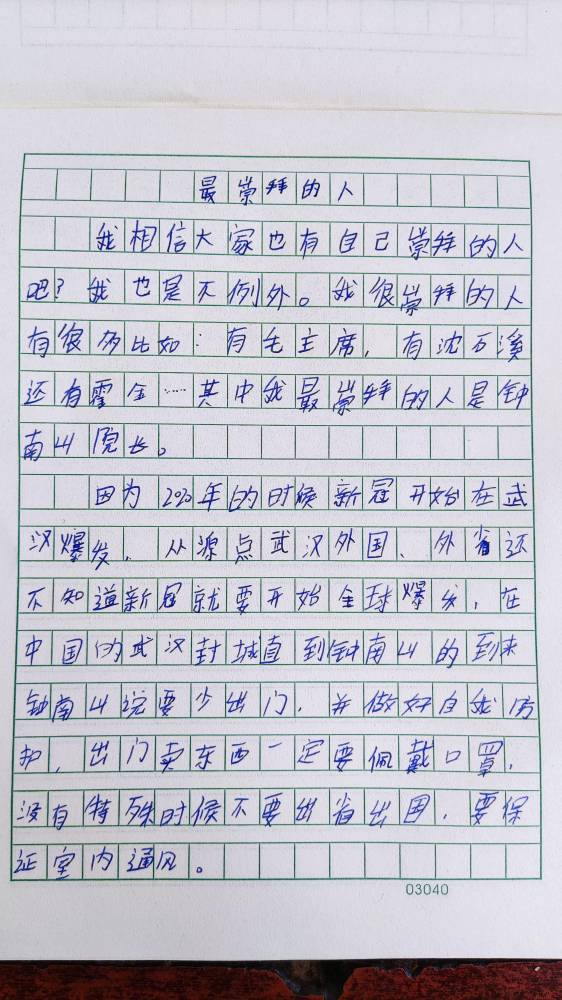 最崇拜的人
我相信大家也有自己崇拜的人
吧？我也是不例外。我很崇拜的人
有很多比如：有毛主席，有沈万溪
还有霍金……其中我最崇拜的人是钟
南山院长。
因为2020年的时候新冠开始在武
汉爆发，从源点武汉外国、外省还
不知道新冠就要开始全球爆发，在
中国的武汉封城直到钟南山的到来
钟南山说要少出门，并做好自我防
护，出门卖东西一定要佩戴口罩，
没有特殊时候不要出省出国，要保
证室内通风。
03040